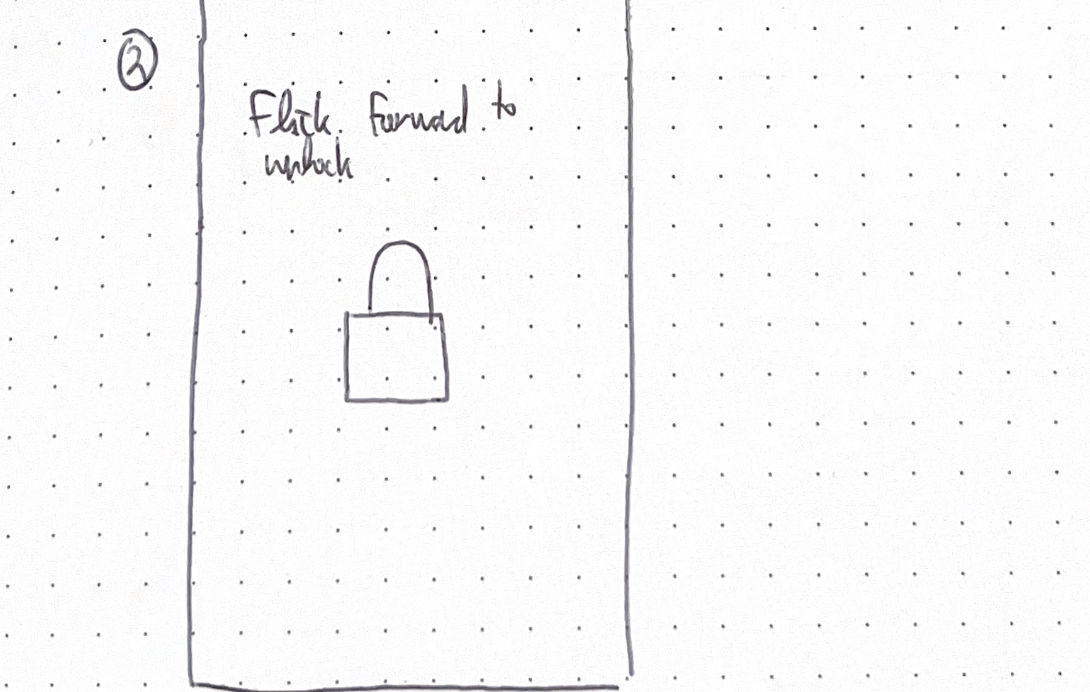 ②
Flick forward to
unlock